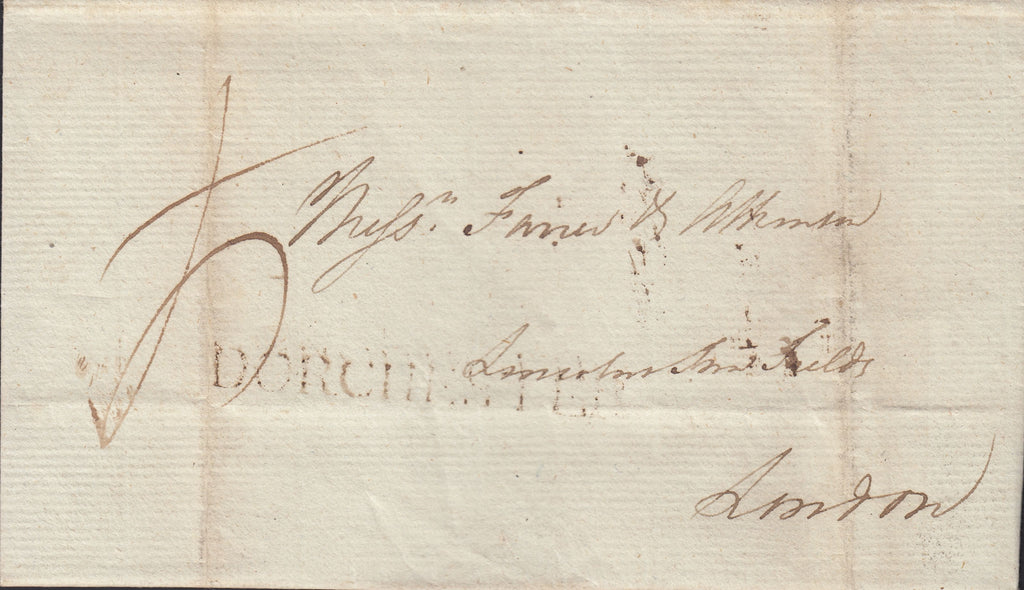 Messrs. Farrer & Atkinson
DORCHESTER
Lincolns Inn Fields
London